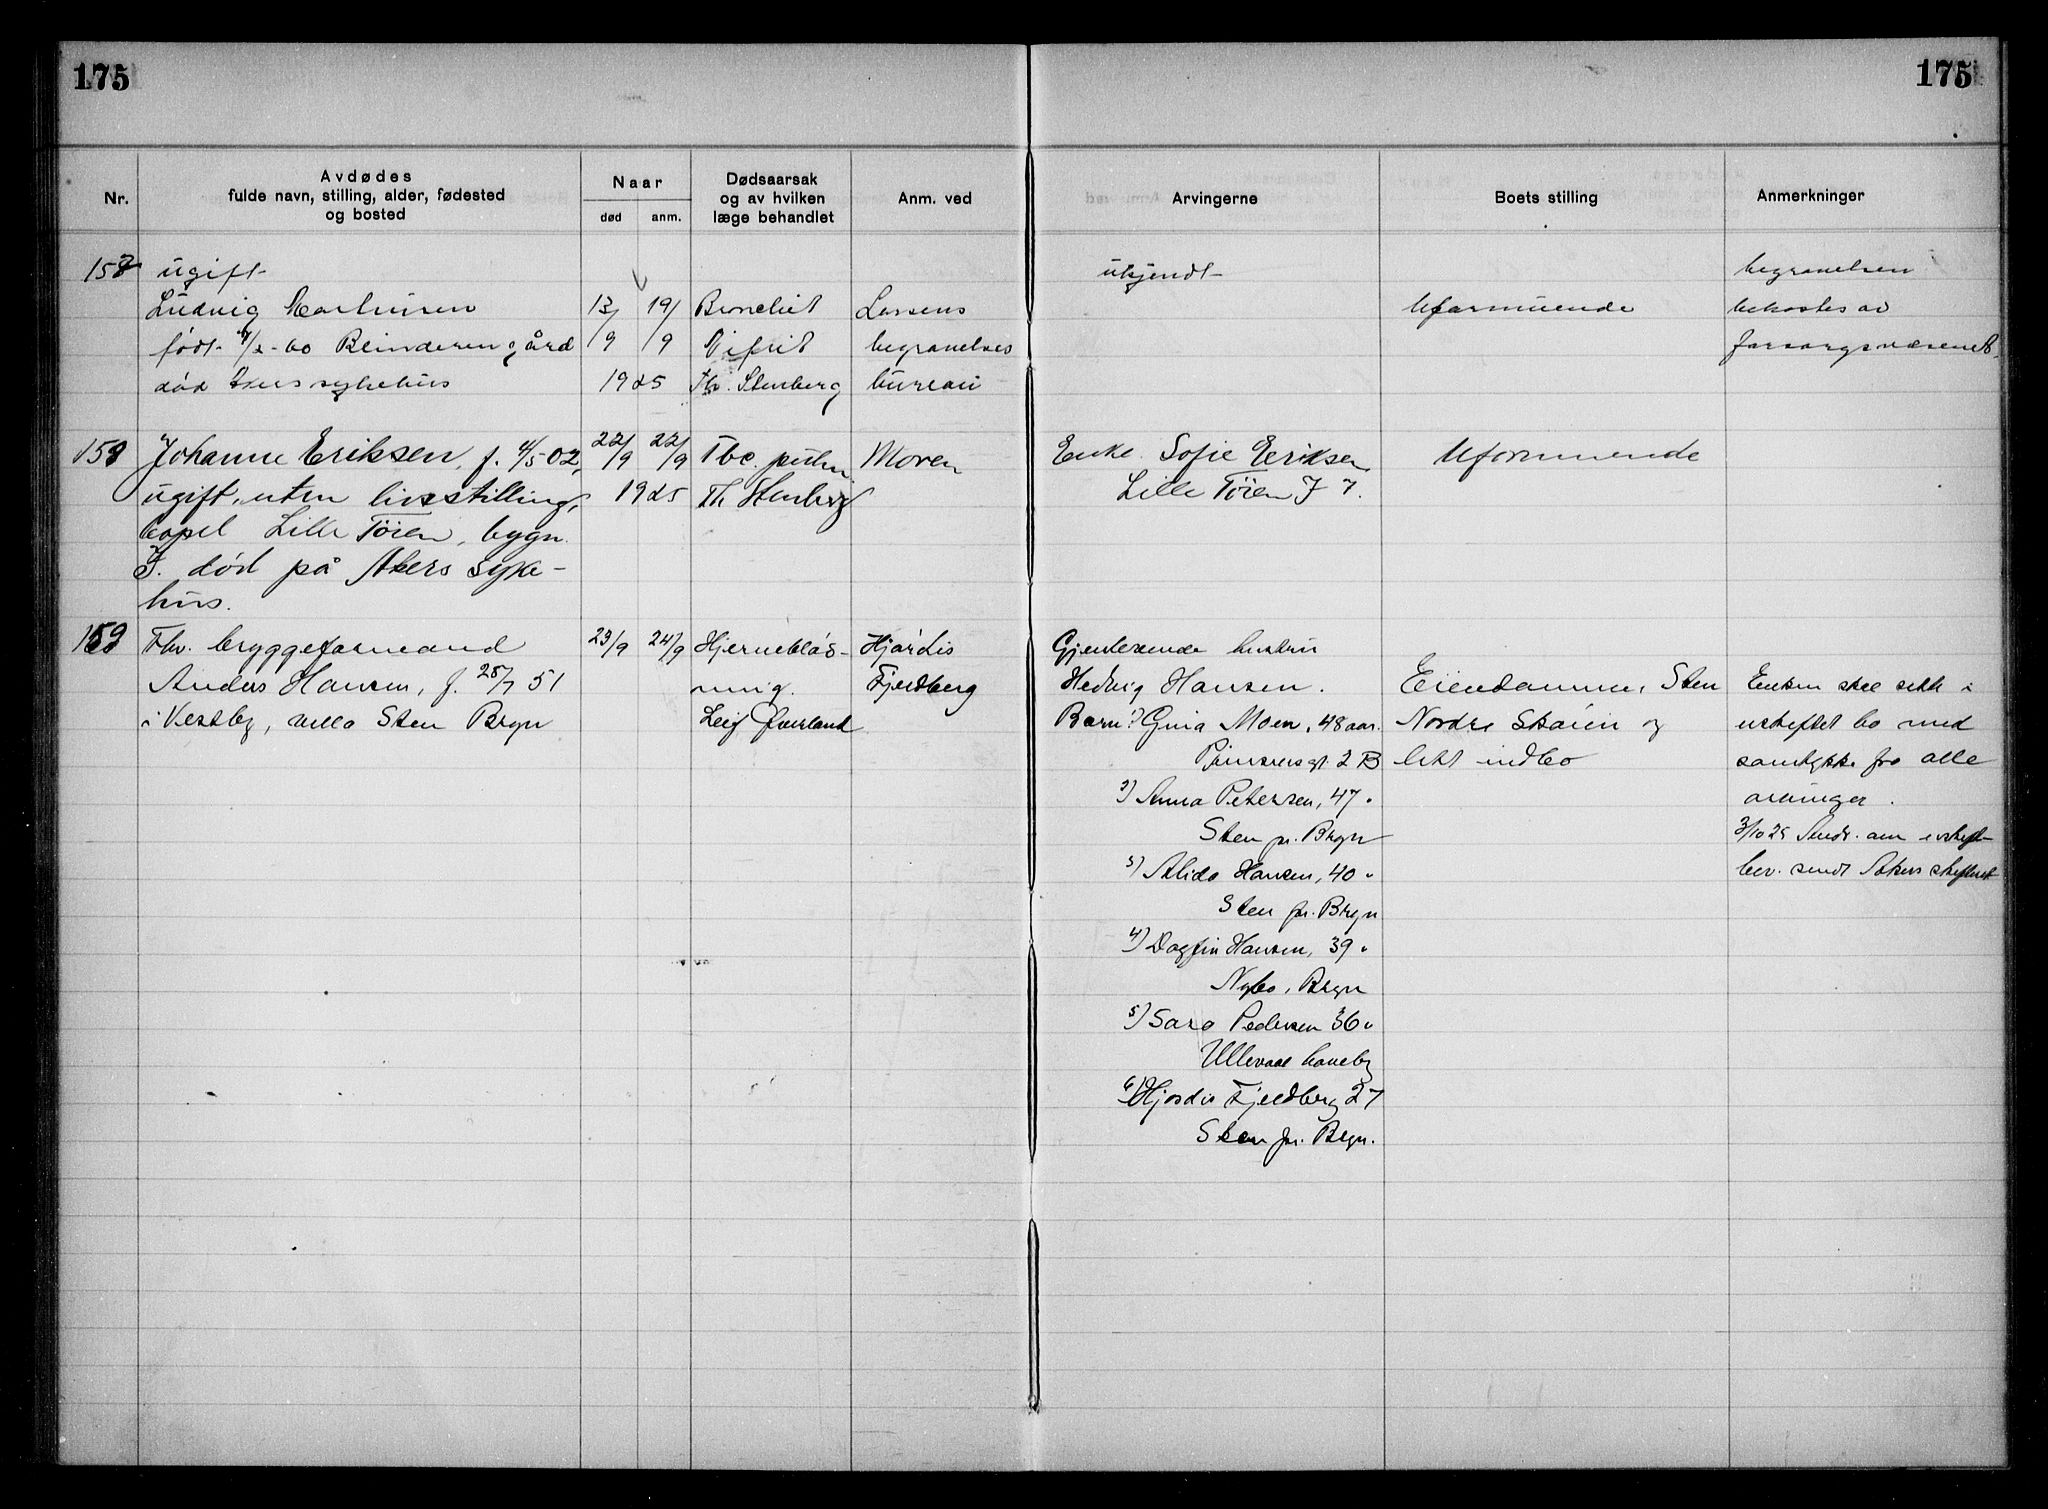 175
175
Nr.
Avdødes
fulde navn, stilling, alder, fødested
og bosted
Naar
død
anm.
Dødsaarsak
og av hvilken
læge behandlet
Anm. ved
Arvingerne
Boets stilling
Anmerkninger
157
ugift
Ludvig
født
død Akers sykehus
13/9 19/9
1925
Th. Stenberg
begravelses
bureau
ukjendt
Uformuende
begravelsen
bekostes av
forsorgsvæsenet.
158
Johanne Eriksen, f. 4/5 02,
ugift, uten livsstilling,
bopel Lille Tøien, bygn.
J. død på Akers syke-
hus.
22/9 22/9
1925
Tbc. pulm
Th Stenberg
Moren
Enke Sofie Eriksen
Lille Tøien J 7.
Uformuende
159
Fhv. bryggeformand
Anders Hansen, f. 25/7 51
i Vestby, villa Sten Bryn
23/9 24/9
Hjerneblød-
ning.
Leif Øverland
Hjørdis
Fjeldberg
Gjenlevende hustru
Hedvig Hansen.
Barn: 1) Gina Moen, 48 aar.
2 B
2) Anna Petersen, 47 "
Sten pr. Bryn
3) Alida Hansen, 40 "
Sten pr. Bryn
4) Dagfin Hansen, 39 "
Nybo, Bryn
5) Sara Pedersen 36 "
Ullevaal haveby
6) Hjørdis Fjeldberg 27
Sten pr. Bryn.
Eiendommen, Sten
Nordre Skøien og
litt indbo
Enken skal sitte i
uskiftet bo med
samtykke fra alle
arvinger.
3/10 25 Andr. om uskift-
bev. sendt Akers skifteret